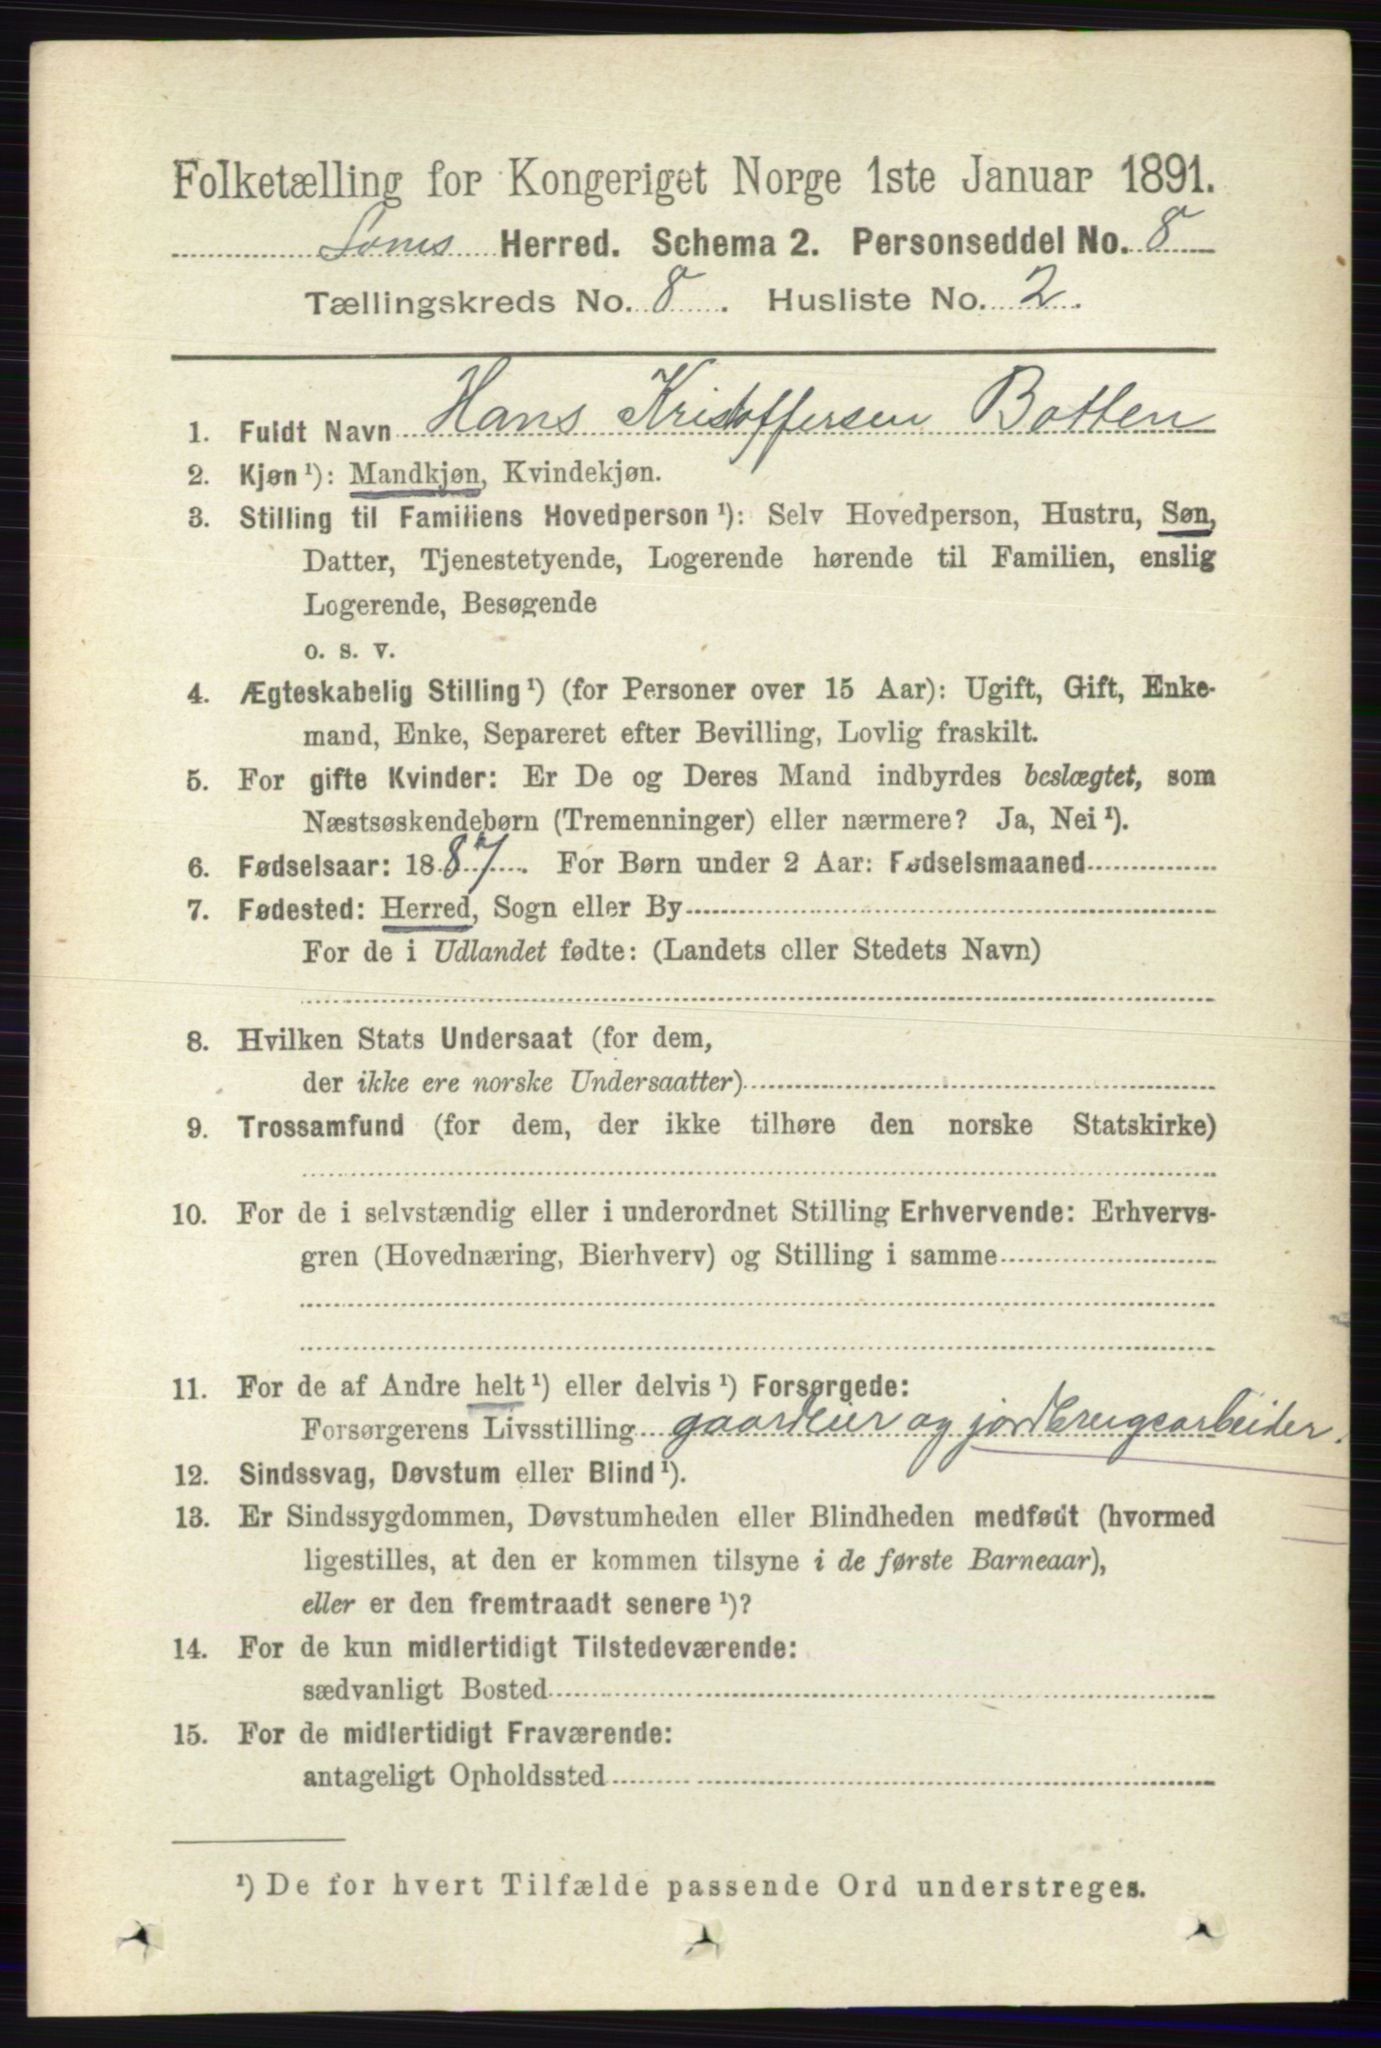 Folketælling for Kongeriget Norge 1ste Januar 1891.
Loms Herred. Schema 2. Personseddel No. 8
Tællingskreds No. 8. Husliste No. 2.
1. Fuldt Navn Hans Kristoffersen Botten
2. Kjøn ¹): Mandkjøn, Kvindekjøn.
3. Stilling til Familiens Hovedperson ¹): Selv Hovedperson, Hustru, Søn,
Datter, Tjenestetyende, Logerende hørende til Familien, enslig
Logerende, Besøgende
o. s. v.
4. Ægteskabelig Stilling ¹) (for Personer over 15 Aar): Ugift, Gift, Enke-
mand, Enke, Separeret efter Bevilling, Lovlig fraskilt.
5. For gifte Kvinder: Er De og Deres Mand indbyrdes beslægtet, som
Næstsøskendebørn (Tremenninger) eller nærmere? Ja, Nei ¹).
6. Fødselsaar: 1887. For Børn under 2 Aar: Fødselsmaaned
7. Fødested: Herred, Sogn eller By
For de i Udlandet fødte: (Landets eller Stedets Navn)
8. Hvilken Stats Undersaat (for dem,
der ikke ere norske Undersaatter)
9. Trossamfund (for dem, der ikke tilhøre den norske Statskirke)
10. For de i selvstændig eller i underordnet Stilling Erhvervende: Erhvervs-
gren (Hovednæring, Bierhverv) og Stilling i samme
11. For de af Andre helt ¹) eller delvis ¹) Forsørgede:
Forsørgerens Livsstilling gaardeier og jordbrugsarbeider.
12. Sindssvag, Døvstum eller Blind ¹).
13. Er Sindssygdommen, Døvstumheden eller Blindheden medfødt (hvormed
ligestilles, at den er kommen tilsyne i de første Barneaar),
eller er den fremtraadt senere ¹)?
14. For de kun midlertidigt Tilstedeværende:
sædvanligt Bosted
15. For de midlertidigt Fraværende:
antageligt Opholdssted
¹) De for hvert Tilfælde passende Ord understreges.